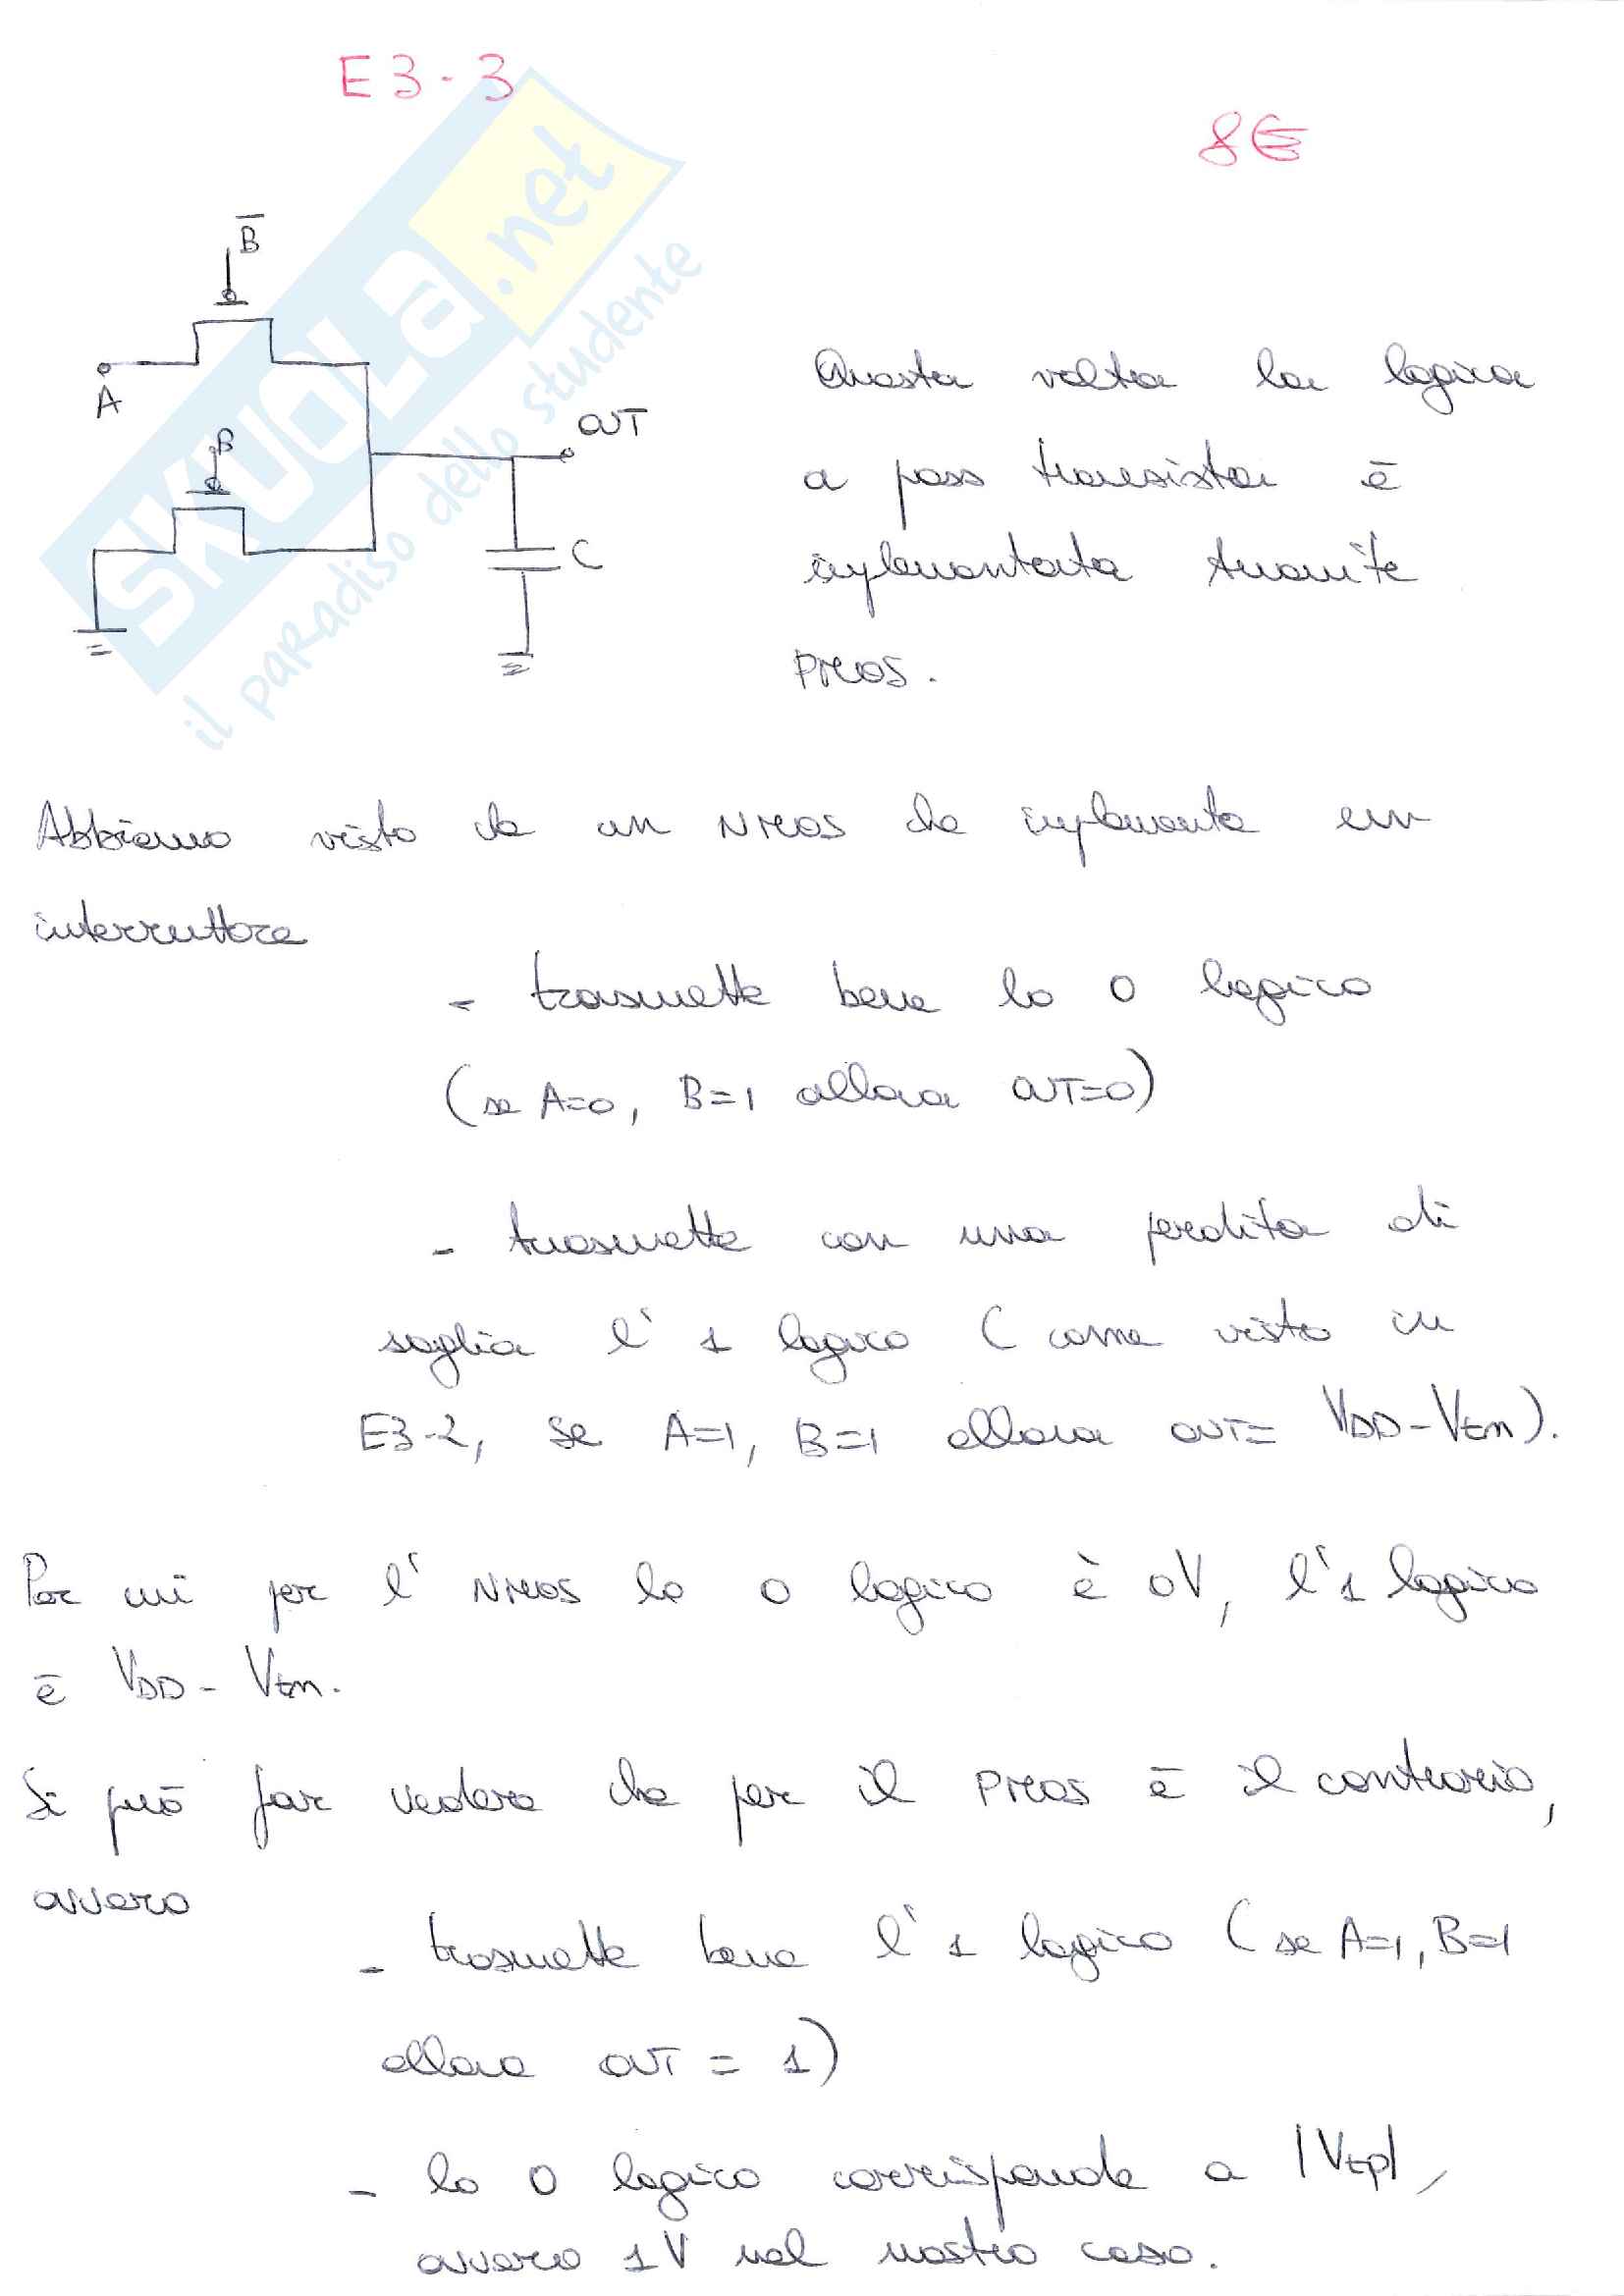 E3-3
8E
B̅
A
B
OUT
C
SKUOLA.net
il paradiso dello studente
Questa volta la logica
a pass transistor è
implementata tramite
PMOS.
Abbiamo visto che un NMOS che implementa un
interruttore
- trasmette bene lo 0 logico
(se A=0, B=1 allora OUT=0)
- trasmette con una perdita di
soglia l'1 logico (come visto in
E3-2, se A=1, B=1 allora OUT= VDD-Vtn).
Per cui per l'NMOS lo 0 logico è 0V, l'1 logico
è VDD-Vtn.
Si può far vedere che per il PMOS è il contrario,
ovvero
- trasmette bene l'1 logico (se A=1, B=1
allora OUT = 1)
- lo 0 logico corrisponde a |Vtp|,
ovvero 1V nel nostro caso.